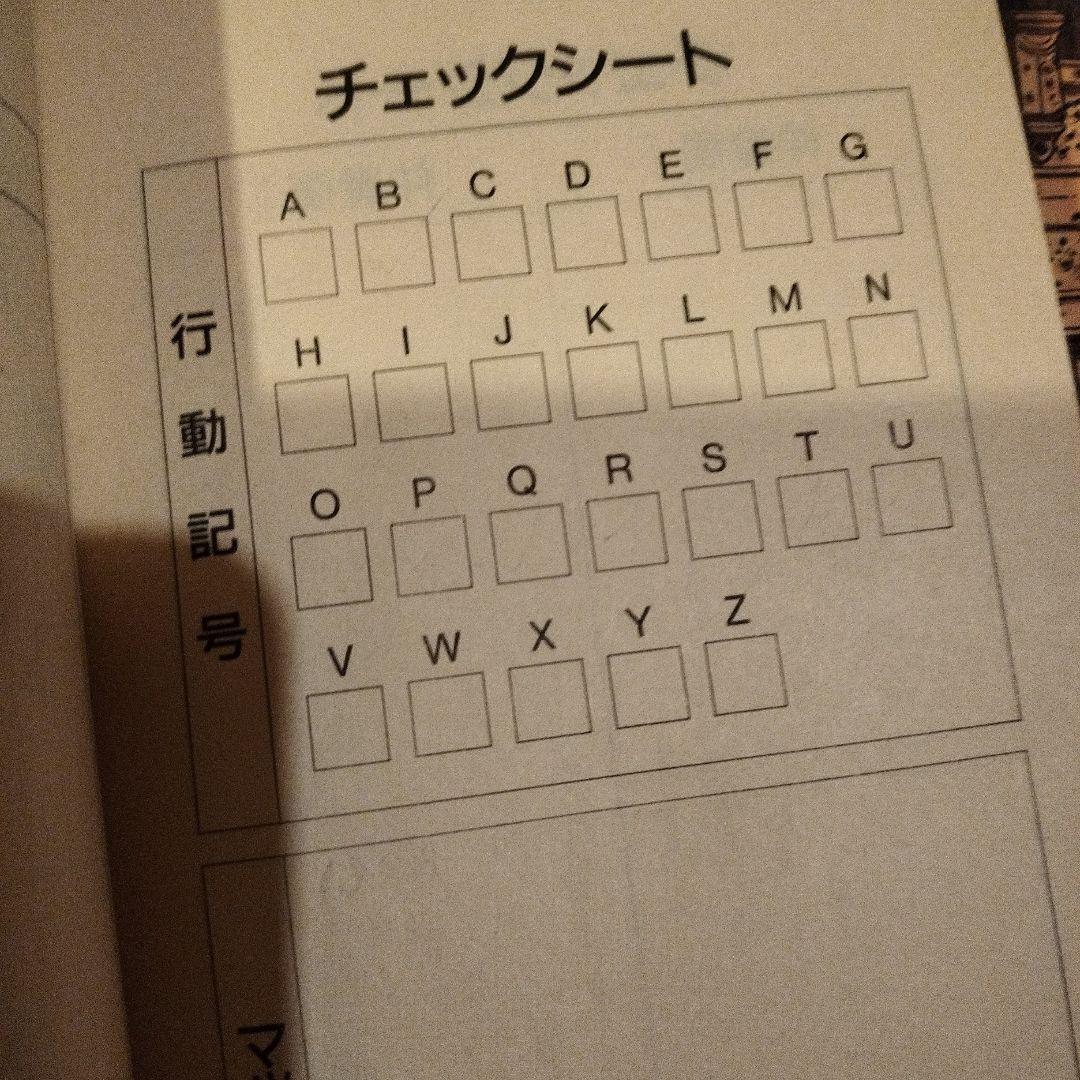 チェックシート
行動記号
A B C D E F G
H I J K L M N
O P Q R S T U
V W X Y Z
マ